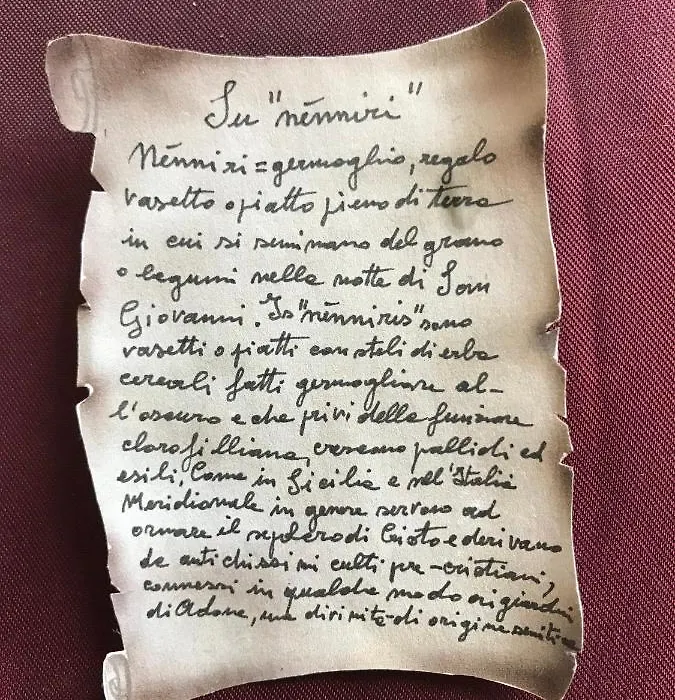 Su "nénniri"
Nénniri = germoglio, regalo
vasetto o piatto pieno di terra
in cui si seminano del grano
o legumi nella notte di San
Giovanni. Is "nénniris" sono
vasetti o piatti con steli di erba
cereali fatti germogliare al-
l'oscuro e che privi della funzione
clorofilliana, crescono pallidi ed
esili, Come in Sicilia e nell'Italia
Meridionale in genere servono ad
ornare il sepolcro di Cristo e derivano
da antichissimi culti pre-cristiani,
connessi in qualche modo ai giardini
di Adone, una divinità di origine semitica